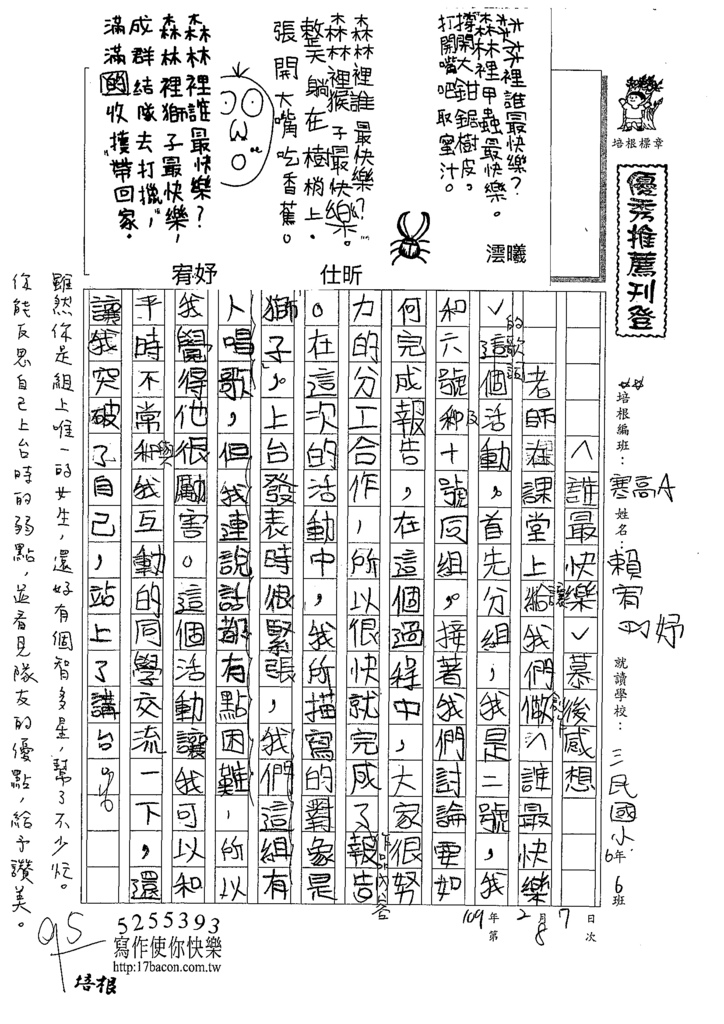 培根標章
優秀推薦刊登
培根編班：寒高A
姓名：賴宥妤
就讀學校：三民國小 6年 6班
109年 2月 7日
第 8 次
森林裡誰最快樂？
森林裡甲蟲最快樂。
撐開大鉗鋸樹皮，
打開嘴吧取蜜汁。
澐曦
森林裡誰最快樂？
森林裡猴子最快樂。
整天躺在樹梢上，
張開大嘴吃香蕉。
仕昕
森林裡誰最快樂？
森林裡獅子最快樂，
成群結隊去打獵，
滿滿的收獲帶回家。
宥妤
︿誰最快樂﹀慕後感想
老師在課堂上給讓我們做創作︿誰最快樂
﹀這個活動的歌詞，首先分組，我是二號，我
和六號和及十號同組。接著，我們討論要如
何完成報告，在這個過程中，大家很努
力的分工合作，所以很快就完成了報告
。在這次的活動中，我所描寫的對象是
獅子，上台發表時很緊張，我們這組有
人唱歌，但我連說話都有點困難，所以
我覺得他很勵害。這個活動讓我可以和
平時不常和與我互動的同學交流一下，還
讓我突破了自己，站上了講台。
雖然你是組上唯一的女生，還好有個智多星，幫了不少忙。
你能反思自己上台時的弱點，並看見隊友的優點，給予讚美。
95
培根
5255393
寫作使你快樂
http:17bacon.com.tw